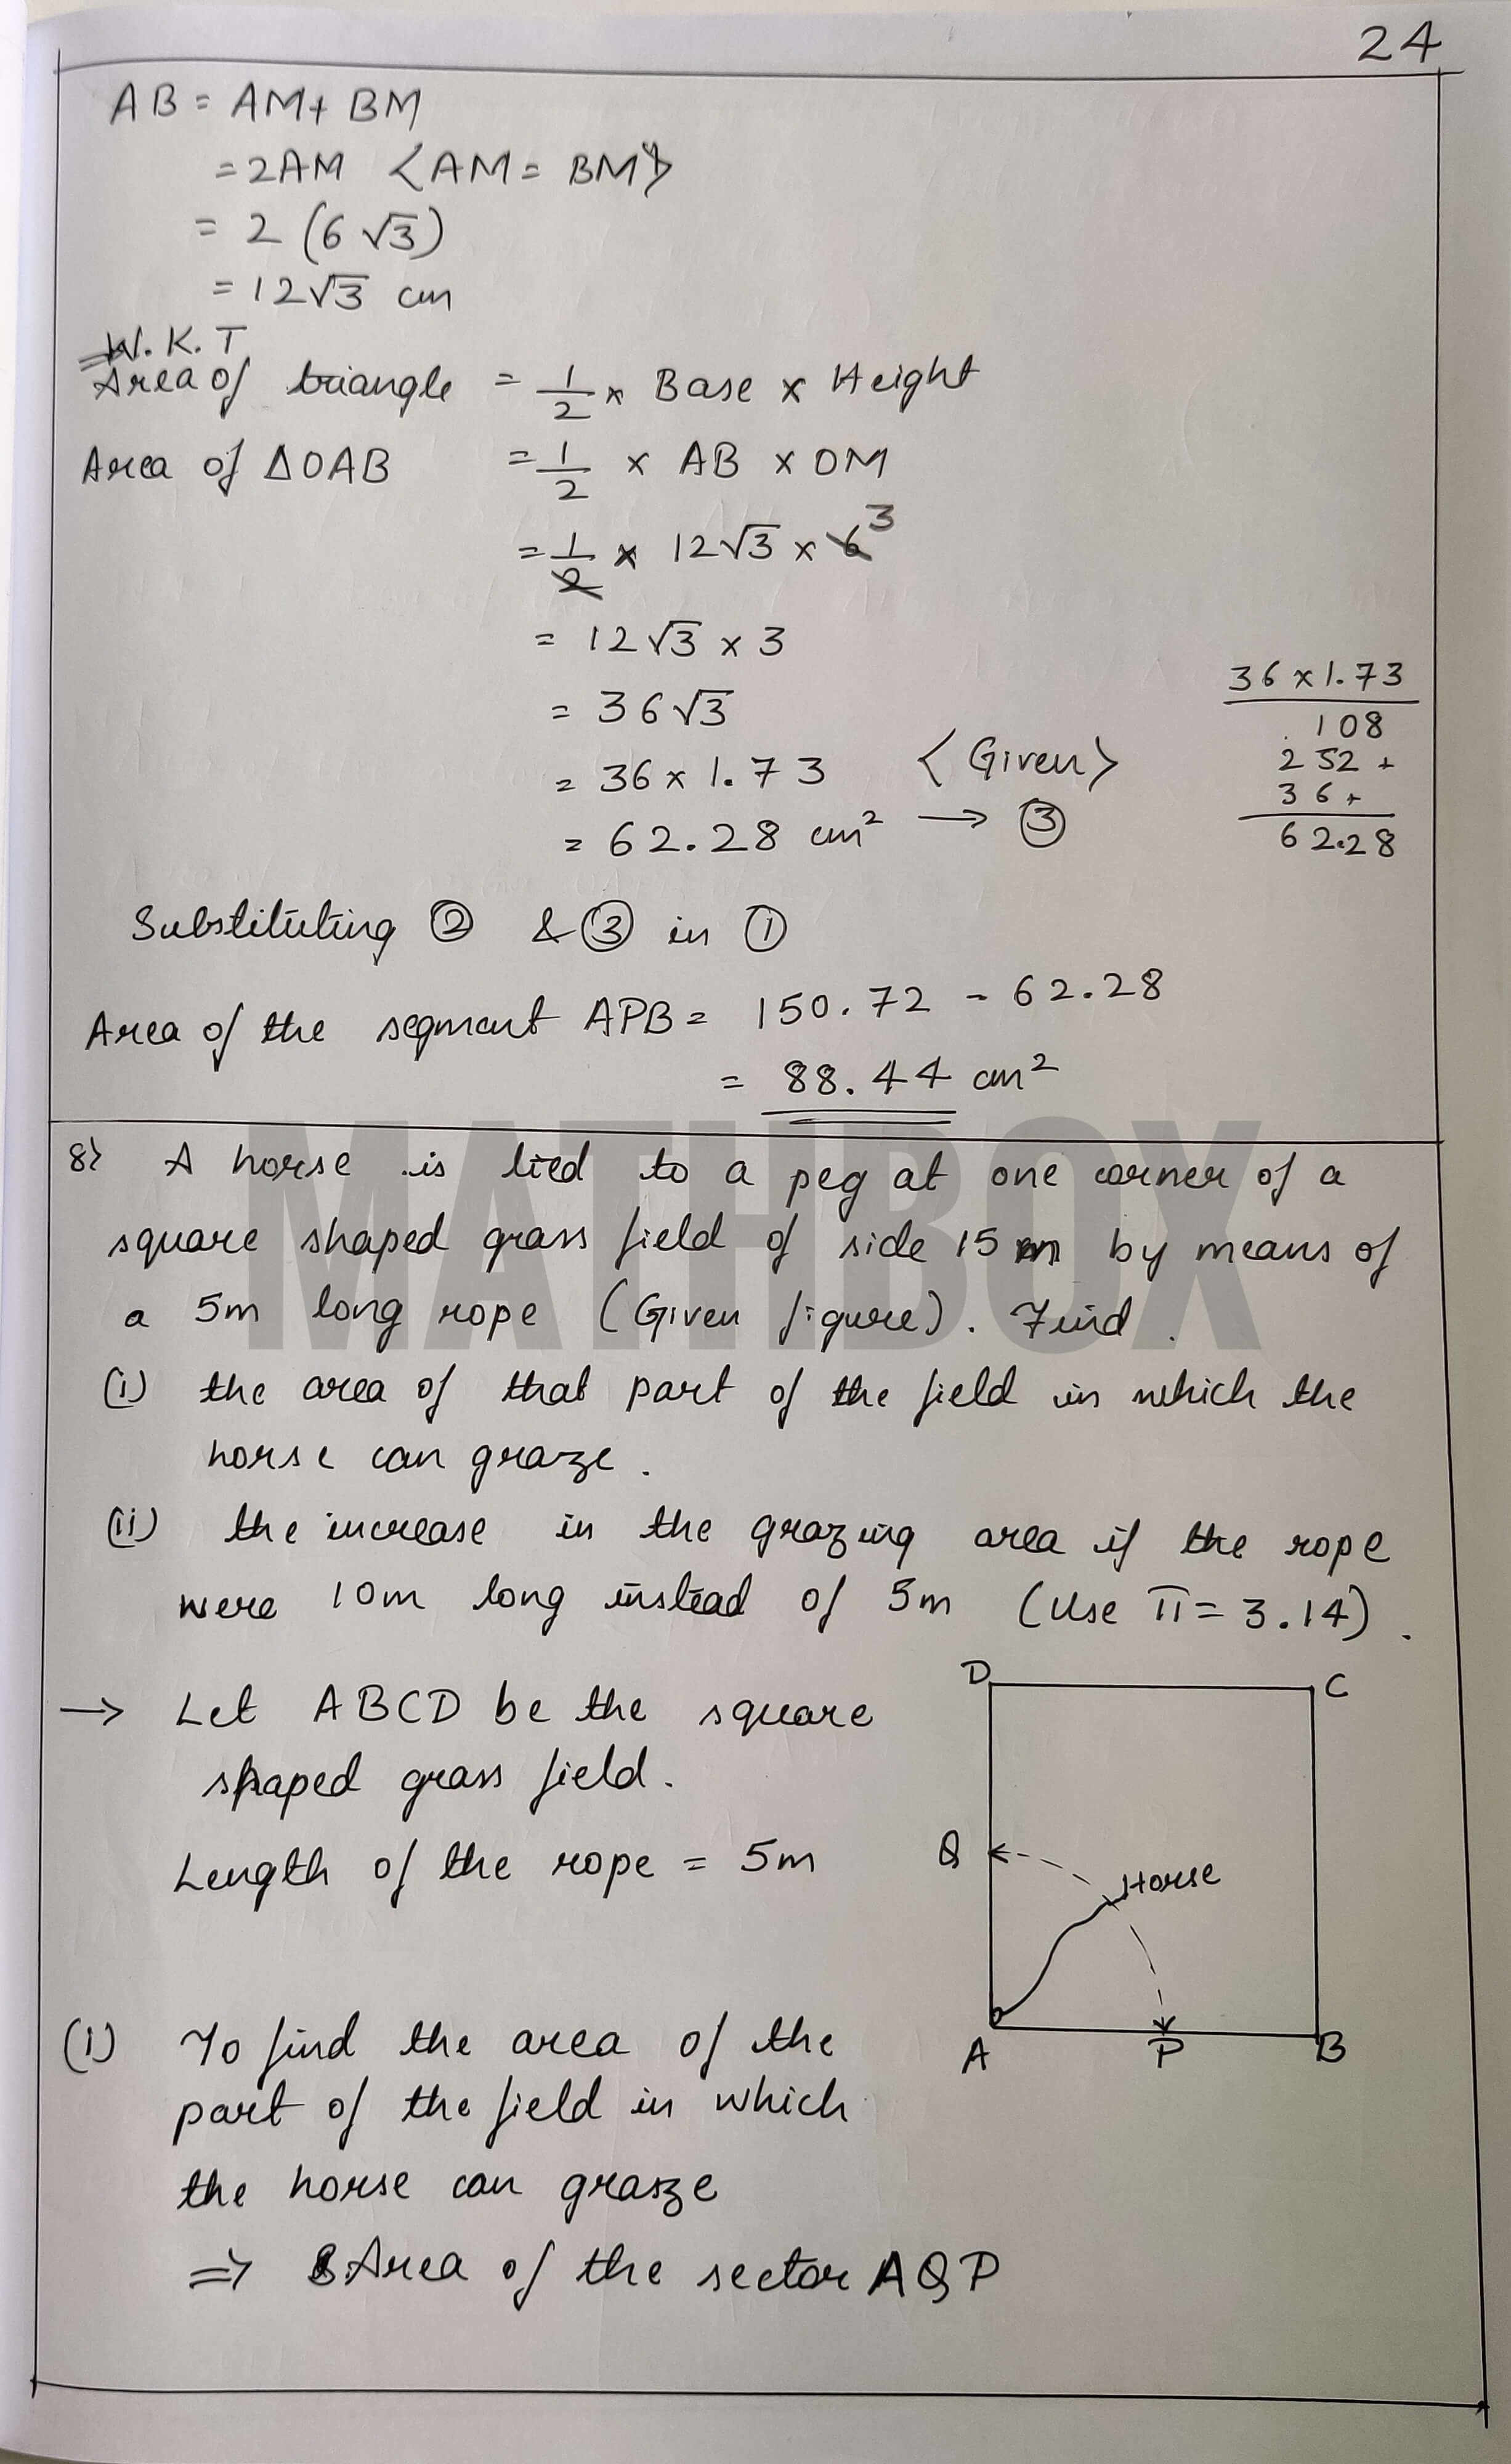 24
AB = AM + BM
= 2AM <AM = BM>
= 2 (6√3)
= 12√3 cm
W.K.T
Area of triangle = 1/2 × Base × Height
Area of ΔOAB = 1/2 × AB × OM
= 1/2 × 12√3 × 6 3
= 12√3 × 3
= 36√3
= 36 × 1.73 <Given>
= 62.28 cm² → ③
36 × 1.73
108
252 +
36 +
62.28
Substituting ② & ③ in ①
Area of the segment APB = 150.72 - 62.28
= 88.44 cm²
MATHBOX
8> A horse is tied to a peg at one corner of a
square shaped grass field of side 15 m by means of
a 5m long rope (Given figure). Find.
(i) the area of that part of the field in which the
horse can graze.
(ii) the increase in the grazing area if the rope
were 10m long instead of 5m (Use π = 3.14).
→ Let ABCD be the square
shaped grass field.
Length of the rope = 5m
D C
Q Horse
A P B
(i) To find the area of the
part of the field in which
the horse can graze
⇒ Area of the sector AQP